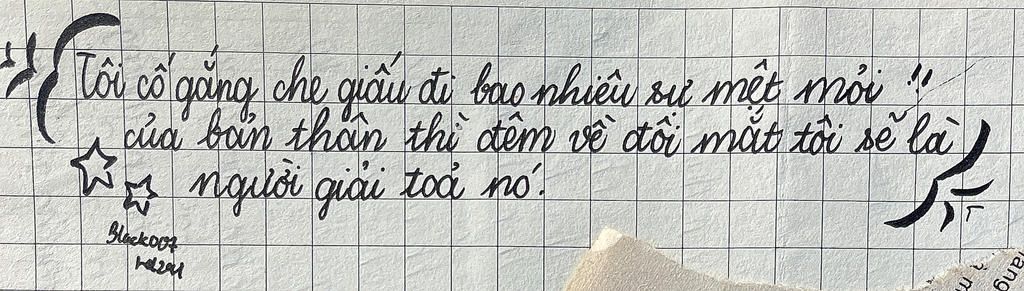 Tôi cố gắng che giấu đi bao nhiêu sự mệt mỏi !!
của bản thân thì đêm về đôi mắt tôi sẽ là
người giải toả nó.
Black007